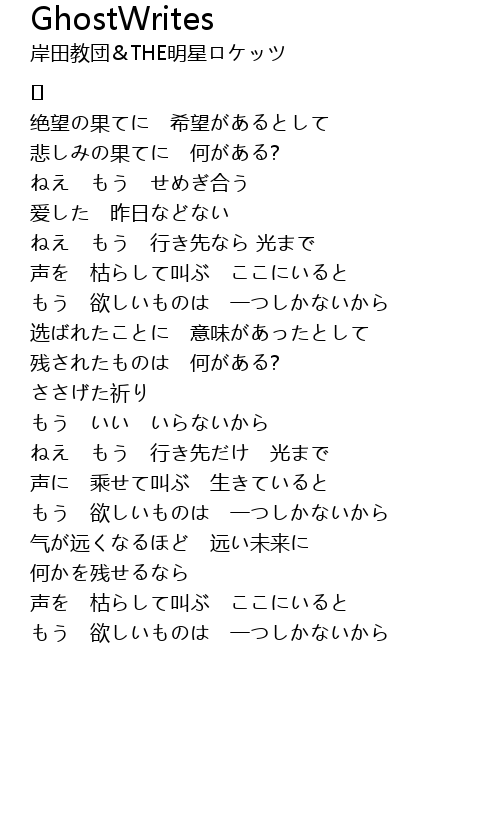 GhostWrites
岸田教団＆THE明星ロケッツ
[]
绝望の果てに　希望があるとして
悲しみの果てに　何がある?
ねえ　もう　せめぎ合う
爱した　昨日などない
ねえ　もう　行き先なら 光まで
声を　枯らして叫ぶ　ここにいると
もう　欲しいものは　一つしかないから
选ばれたことに　意味があったとして
残されたものは　何がある?
ささげた祈り
もう　いい　いらないから
ねえ　もう　行き先だけ　光まで
声に　乘せて叫ぶ　生きていると
もう　欲しいものは　一つしかないから
气が远くなるほど　远い未来に
何かを残せるなら
声を　枯らして叫ぶ　ここにいると
もう　欲しいものは　一つしかないから